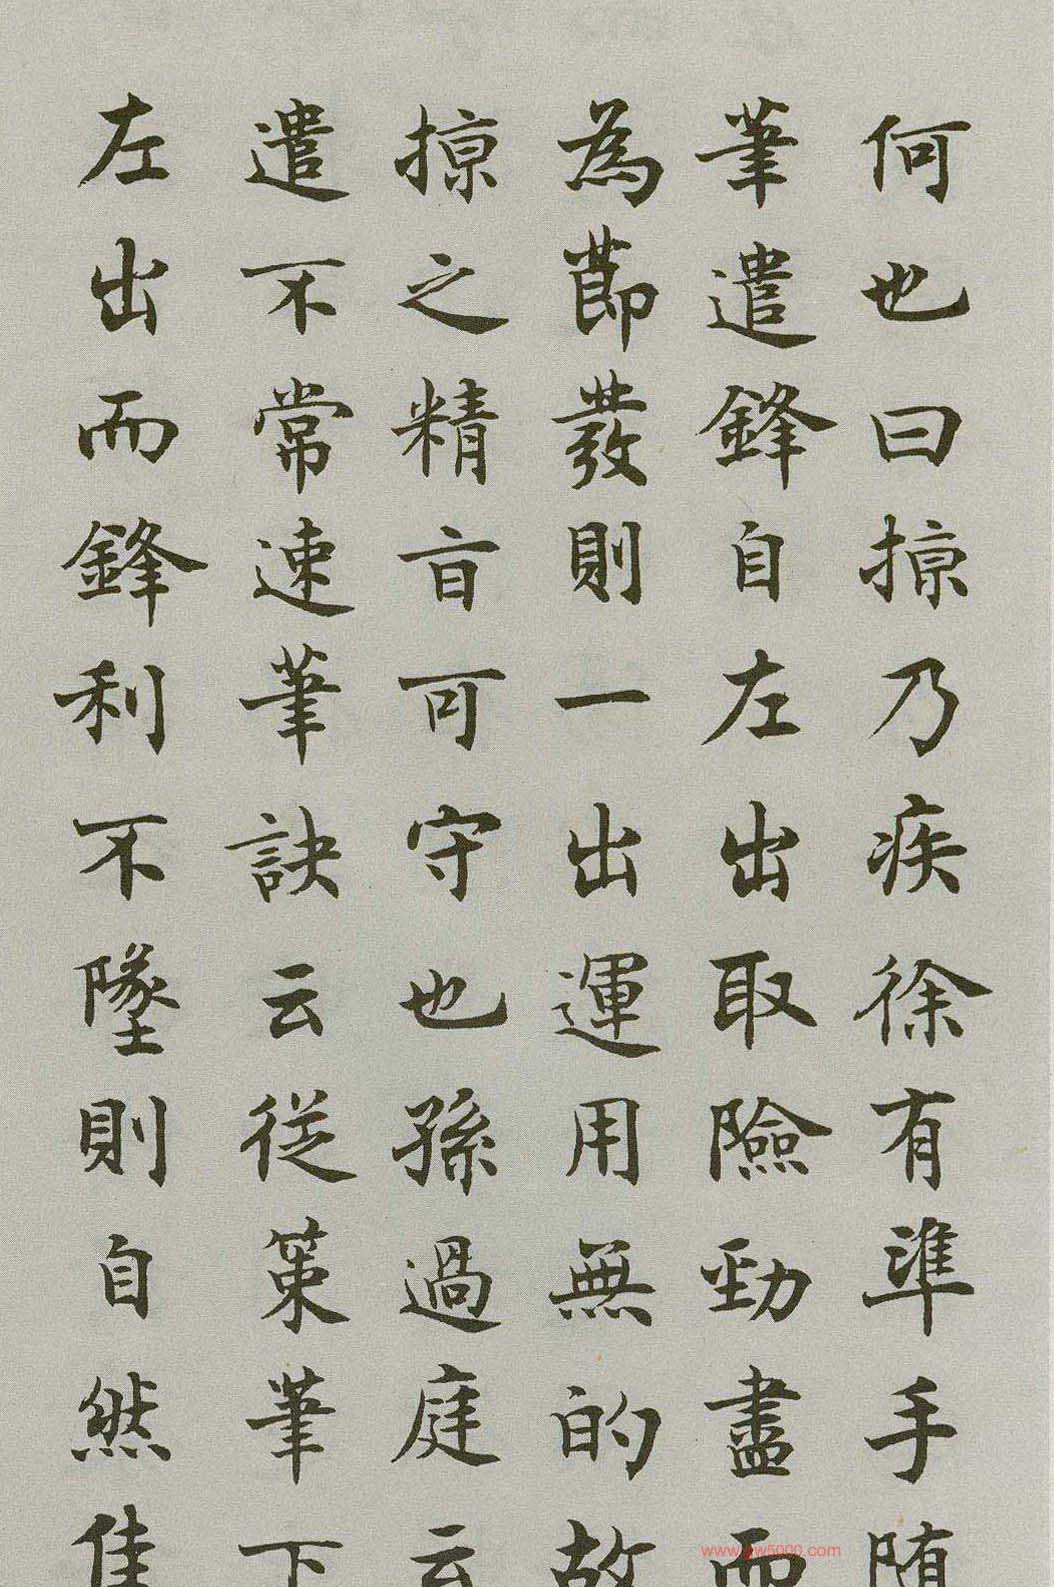 何也曰掠乃疾徐有準手随
筆遣鋒自左出取險勁盡而
為節發則一出運用無的故
掠之精旨可守也孫過庭云
遣不常速筆訣云従策筆下
左出而鋒利不墜則自然佳
www.yw5000.com